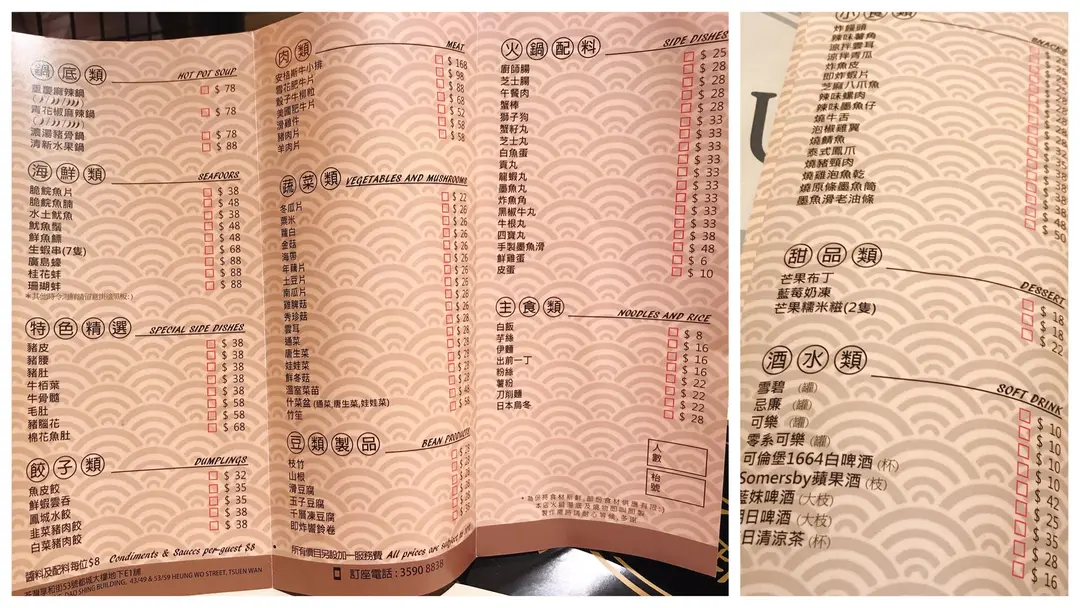 鍋底類 HOT POT SOUP
重慶麻辣鍋 $ 78
青花椒麻辣鍋 $ 78
濃湯豬骨鍋 $ 78
清新水果鍋 $ 88
海鮮類 SEAFOORS
脆脘魚片 $ 38
脆脘魚腩 $ 48
水土魷魚 $ 38
魷魚鬚 $ 48
鮮魚鰾 $ 48
生蝦串(7隻) $ 68
廣島蠔 $ 88
桂花蚌 $ 88
珊瑚蚌 $ 88
特色精選 SPECIAL SIDE DISHES
豬皮 $ 38
豬腰 $ 38
豬肚 $ 38
牛栢葉 $ 38
牛骨髓 $ 38
毛肚 $ 58
豬腦花 $ 58
棉花魚肚 $ 68
餃子類 DUMPLINGS
魚皮餃 $ 32
鮮蝦雲吞 $ 35
鳳城水餃 $ 35
韭菜豬肉餃 $ 38
白菜豬肉餃 $ 38
醬料及配料每位$8 Condiments & Sauces per guest $8
荃灣享和街53號都城大樓地下E1舖
DAO SHING BUILDING, 43/49 & 53/59 HEUNG WO STREET, TSUEN WAN
肉類 MEAT
安格斯牛小排 $ 168
雪花肥牛片 $ 98
骰子牛柳粒 $ 88
美國肥牛片 $ 68
滑雞件 $ 52
豬肉片 $ 58
羊肉片 $ 58
蔬菜類 VEGETABLES AND MUSHROOMS
冬瓜片 $ 22
粟米 $ 26
蘿白 $ 26
金菇 $ 26
海帶 $ 26
年藕片 $ 26
土豆片 $ 26
南瓜片 $ 26
雞脾菇 $ 26
秀珍菇 $ 28
雲耳 $ 28
通菜 $ 28
唐生菜 $ 28
娃娃菜 $ 28
鮮冬菇 $ 28
溫室菜苗 $ 28
什菜盆 (通菜,唐生菜,娃娃菜) $ 48
竹笙 $ 58
豆類製品 BEAN PRODUCTS
枝竹 $ 28
山根 $ 28
滑豆腐
玉子豆腐
千層凍豆腐
即炸響鈴卷
所有價目另設加一服務費 All prices are subject
訂座電話 : 3590 8838
火鍋配料 SIDE DISHES
廚師腸 $ 25
芝士腸 $ 28
午餐肉 $ 28
蟹棒 $ 28
獅子狗 $ 28
蟹籽丸 $ 33
芝士丸 $ 33
白魚蛋 $ 33
貢丸 $ 33
龍蝦丸 $ 33
墨魚丸 $ 33
炸魚角 $ 33
黑椒牛丸 $ 33
牛根丸 $ 33
四寶丸 $ 38
手製墨魚滑 $ 48
鮮雞蛋 $ 6
皮蛋 $ 10
主食類 NOODLES AND RICE
白飯 $ 8
芋絲 $ 16
伊麵 $ 16
出前一丁 $ 16
粉絲 $ 16
薯粉 $ 22
刀削麵 $ 22
日本烏冬 $ 28
人數
枱號
小食類 SNACKS
炸饅頭
辣味薯角
涼拌雲耳
涼拌青瓜
炸魚皮
即炸蝦片
芝麻八爪魚
辣味螺肉
辣味墨魚仔
燒牛舌
泡椒雞翼
燒鯖魚
泰式鳳爪
燒豬頸肉
燒雞泡魚乾
燒原條墨魚筒 $ 48
墨魚滑老油條 $ 50
甜品類 DESSERT
芒果布丁 $ 18
藍莓奶凍 $ 18
芒果糯米糍(2隻) $ 22
酒水類 SOFT DRINK
雪碧 (罐) $ 10
忌廉 (罐) $ 10
可樂 (罐) $ 10
零系可樂 (罐) $ 10
可倫堡1664白啤酒 (杯) $ 42
Somersby蘋果酒 (枝) $ 25
藍妹啤酒 (大枝) $ 35
日啤酒 (大枝) $ 28
日清涼茶 (杯) $ 16